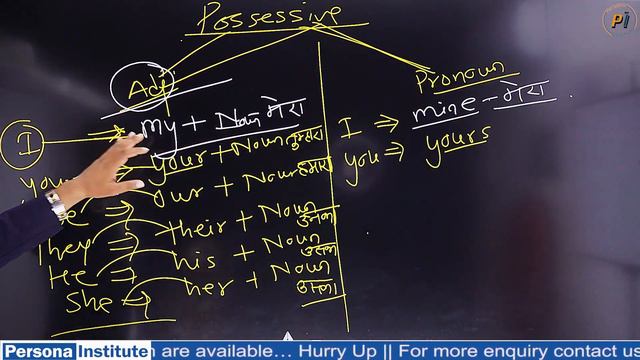 Possessive
Adj
Pronoun
I ⇒ my + Noun मेरा
your + Noun तुम्हारा
our + Noun हमारा
They ⇒ their + Noun उनका
He ⇒ his + Noun उसका
She ⇒ her + Noun उसका
I ⇒ mine - मेरा.
you ⇒ yours
Pi
Persona Institute
are available... Hurry Up || For more enquiry contact us